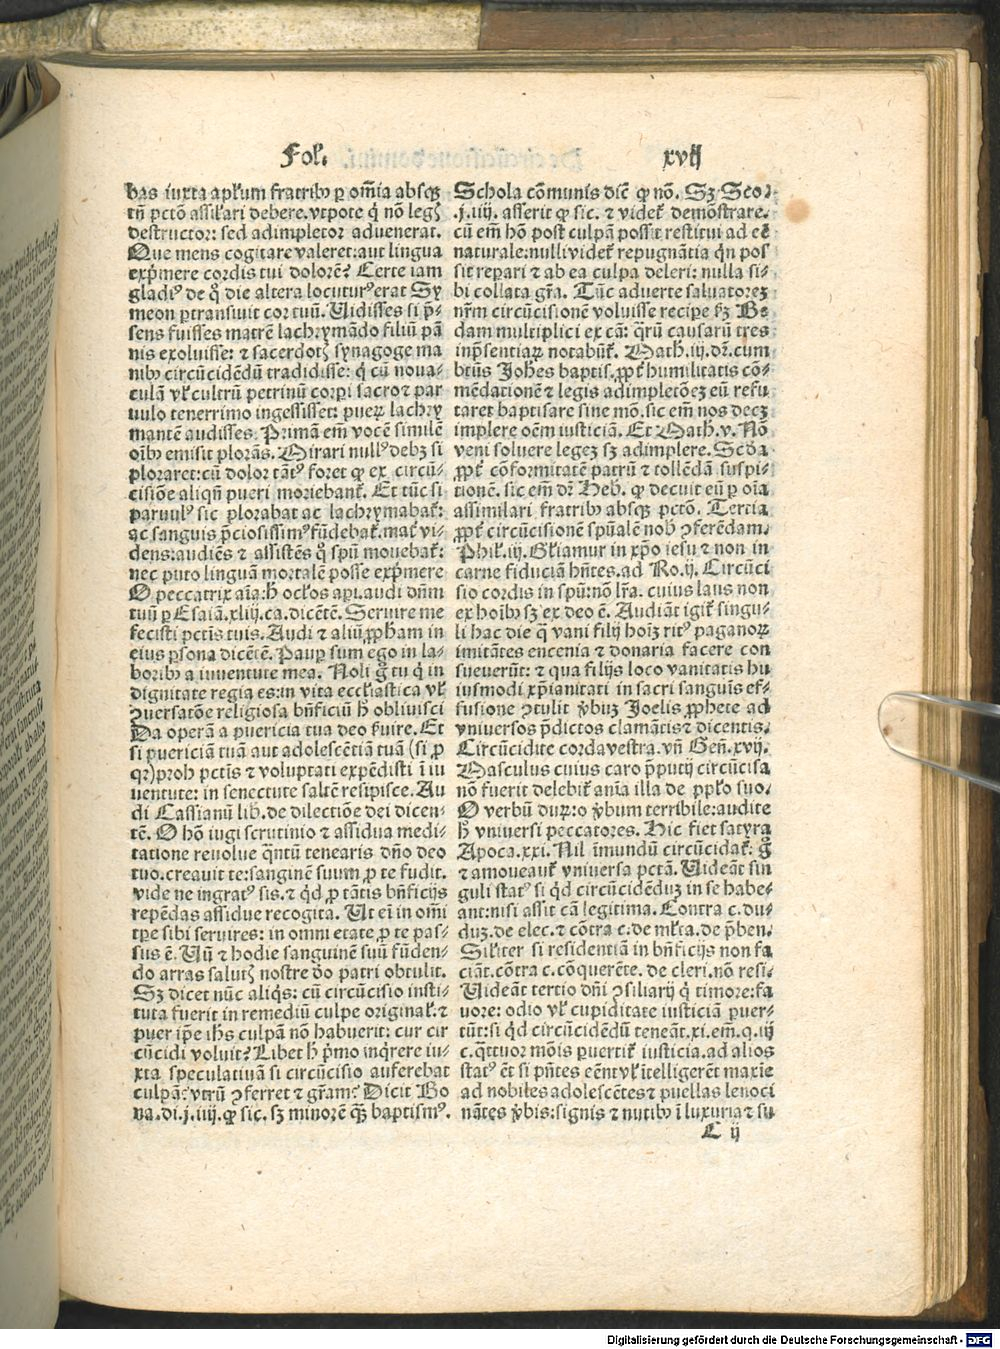 Fol. xvij
bas iuxta aplʼum fratribꝰ ꝑ om̄ia absqꝫ
tn̄ pctō assilʼari debere. vtpote qͥ nō legꝭ
destructor: sed adimpletor aduenerat.
Que mens cogitare valeret: aut lingua
exp̄mere cordis tui dolorē? Certe iam
gladiꝰ de qͦ die altera locuturꝰ erat Sy
meon ꝑtransiuit cor tuū. Uidisses si p̄-
sens fuisses matrē lachrymādo filiū pā
nis exoluisse: ⁊ sacerdotꝭ synagoge ma
nibꝰ circūcidēdū tradidisse: qͥ cū noua-
culā vlʼ cultrū petrinū corpi sacro ⁊ par
uulo tenerrimo ingessisset: pueꝝ lachry
mantē audisses. Primā em̄ vocē similē
oībꝰ emisit plorās. Mirari nullꝰ debꝫ si
ploraret: cū dolor tātꝰ foret ꝙ ex circū-
cisiōe aliqn̄ pueri moriebantʼ. Et tūc si
paruulꝰ sic plorabat ac lachrymabatʼ:
ac sanguis p̄ciosissimꝰ fūdebatʼ. matʼ vi-
dens: audiēs ⁊ assistēs qͦ spū mouebatʼ:
nec puto linguā mortalē posse exp̄mere
O peccatrix aīa: h̄ oclʼos apı. audi dn̄m
tuū ꝑ Esaiā. xliij. ca. dicētē. Seruire me
fecisti pctīs tuis. Audi ⁊ aliū ꝓpham in
eius ꝑsona dicētē. Paupꝑ sum ego in la-
boribꝰ a iuuentute mea. Noli gͦ tu qͥ in
dignitate regia es: in vita ecclʼiastica vlʼ
ꝯuersatōe religiosa bn̄ficiū h̄ obliuisci
Da operā a puericia tua deo ẜuire. Et
si puericiā tuā aut adolescētiā tuā (si ꝓ
qꝛ) proh pctīs ⁊ voluptati expēdisti ī iu
uentute: in senectute saltē resipisce. Au
di Cassianū lib. de dilectiōe dei dicen-
tē. O hō iugi scrutinio ⁊ assidua medi-
tatione reuolue qͣntū tenearis dn̄o deo
tuo. creauit te: sanguinē suum ꝓ te fudit.
vide ne ingratꝰ sis. ⁊ qͥd ꝓ tātis bn̄ficijs
repēdas assidue recogita. Ut eī in om̄i
tꝑe sibi seruires: in omni etate ꝓ te pas-
sus ē. Uñ ⁊ hodie sanguinē suū fūden-
do arras salutꝭ nostre deo patri obtulit.
Sꝫ dicet nūc aliqͥs: cū circūcisio insti-
tuta fuerit in remediū culpe originalʼ. ⁊
puer ip̄e ihs culpā nō habuerit: cur cir
cūcidi voluit? Libet h̄ pͥmo inqͥrere iu-
xta speculatiuā si circūcisio auferebat
culpā: vtrū ꝯferret ⁊ grām? Dicit Bo
na. di. j. iiij. ꝙ sic. sꝫ minorē qꝫ baptismꝰ.
Schola cōmunis dic̄ ꝙ nō. Sꝫ Sco.
.j. iiij. asserit ꝙ sic. ⁊ videtʼ demōstrare.
cū em̄ hō post culpā possit restitui ad eē
naturale: nulli videtʼ repugnātia qͥn pos
sit repari ⁊ ab ea culpa deleri: nulla si-
bi collata gr̄a. Tūc aduerte saluatoreꝫ
nr̄m circūcisionē voluisse recipe ẜꝫ Be
dam multiplici ex cā: qͣrū causarū tres
inp̄sentiaꝝ notabūtʼ. Math. iij. dr̄. cum
btūs Johēs baptis. ꝓptʼ humilitatis cō-
mēdationē ⁊ legis adimpletōeꝫ eū refu
taret baptisare sine mō. sic em̄ nos decꝫ
implere oēm iusticiā. Et Math. v. Nō
veni soluere legeꝫ sꝫ adimplere. Scd̄a
ꝓptʼ cōformitatē patrū ⁊ tollēdā suspi-
tionē. sic em̄ dr̄ Heb. ꝙ decuit eū ꝑ oīa
assimilari fratribꝰ absqꝫ pctō. Tertia
ꝓptʼ circūcisionē spūalē nobꝭ ꝯferēdam.
Phil. iij. Glʼiamur in xp̄o iesu ⁊ non in
carne fiduciā hn̄tes. ad Ro. ij. Circūci
sio cordis in spū: nō lr̄a. cuius laus non
ex hoībꝰ sꝫ ex deo ē. Audiāt igitʼ singu-
li hac die qͣ vani filij hoīꝫ ritꝰ paganoꝝ
imitātes encenia ⁊ donaria facere con
sueuerūt: ⁊ qua filijs loco vanitatis hu
iusmodi xp̄ianitati in sacri sanguīs ef-
fusione ꝯtulit v̄bꝫ Joelis ꝓphete ad
vniuersos p̄dictos clamātis ⁊ dicentis.
Circūcidite corda vestra. vn̄ Gen̄. xvij.
Masculus cuius caro p̄putij circūcisa
nō fuerit delebitʼ anīa illa de pplʼo suo.
O verbū duꝝ: o v̄bum terribile: audite
h̄ vniuersi peccatores. Hic fiet satyra
Apoca. xxi. Nil īmundū circūcidatʼ: gͦ
⁊ amoueantʼ vniuersa pctā. Uideāt sin
guli statꝰ si qͥd circūcidēduꝫ in se habe-
ant: nisi assit cā legitima. Contra c. du-
duꝫ. de elec. ⁊ cōtra c. de mlʼta. de p̄ben.
Silʼiter si residentiā in bn̄ficijs non fa
ciāt. cōtra c. cōquerēte. de cleri. nō resi.
Uideāt tertio dn̄i ꝯsiliarij qͥ timore: fa
uore: odio vlʼ cupiditate iusticiā ꝑuer-
tūt: si qͥd circūcidēdū teneāt. xi. em̄. q. iij
c. qͣttuor mōis ꝑuertitʼ iusticia. ad alios
statꝰ ēt si pn̄tes eēnt vlʼ ītelligerēt maxīe
ad nobiles adolescētes ⁊ puellas lenoci
nātes v̄bis: signis ⁊ nutibꝰ ī luxuria ⁊ su
C ij
Digitalisierung gefördert durch die Deutsche Forschungsgemeinschaft - DFG